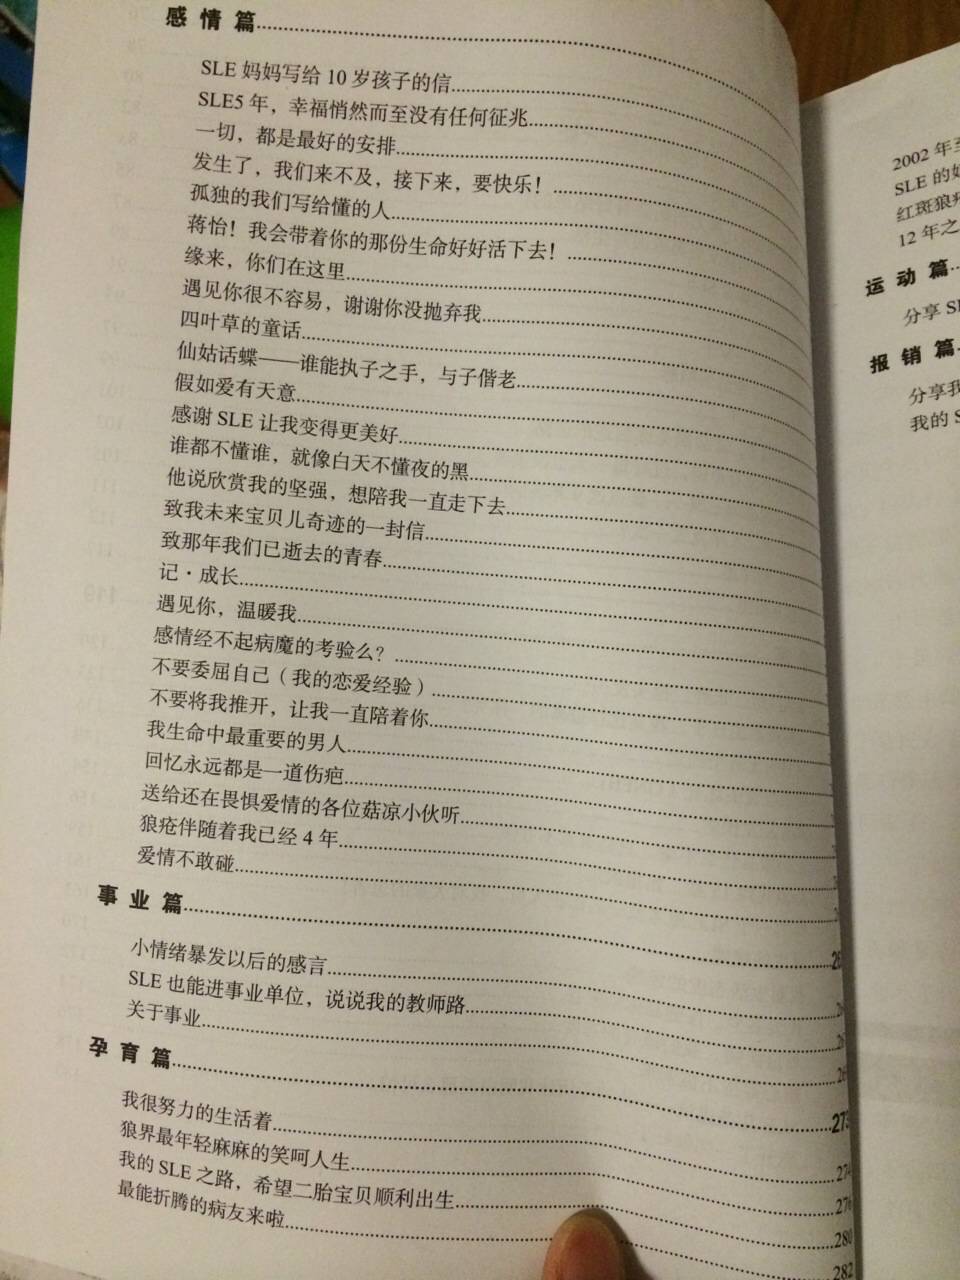 感情篇
SLE 妈妈写给 10 岁孩子的信
SLE5 年，幸福悄然而至没有任何征兆
一切，都是最好的安排
发生了，我们来不及，接下来，要快乐！
孤独的我们写给懂的人
蒋怡！我会带着你的那份生命好好活下去！
缘来，你们在这里
遇见你很不容易，谢谢你没抛弃我
四叶草的童话
仙姑话蝶——谁能执子之手，与子偕老
假如爱有天意
感谢 SLE 让我变得更美好
谁都不懂谁，就像白天不懂夜的黑
他说欣赏我的坚强，想陪我一直走下去
致我未来宝贝儿奇迹的一封信
致那年我们已逝去的青春
记·成长
遇见你，温暖我
感情经不起病魔的考验么？
不要委屈自己（我的恋爱经验）
不要将我推开，让我一直陪着你
我生命中最重要的男人
回忆永远都是一道伤疤
送给还在畏惧爱情的各位菇凉小伙听
狼疮伴随着我已经 4 年
爱情不敢碰
事业篇
小情绪暴发以后的感言
SLE 也能进事业单位，说说我的教师路
关于事业
孕育篇 273
我很努力的生活着 274
狼界最年轻麻麻的笑呵人生 276
我的 SLE 之路，希望二胎宝贝顺利出生 280
最能折腾的病友来啦 282
2002 年至
SLE 的
红斑狼
12 年之
运动篇
分享
报销篇
分享我
我的